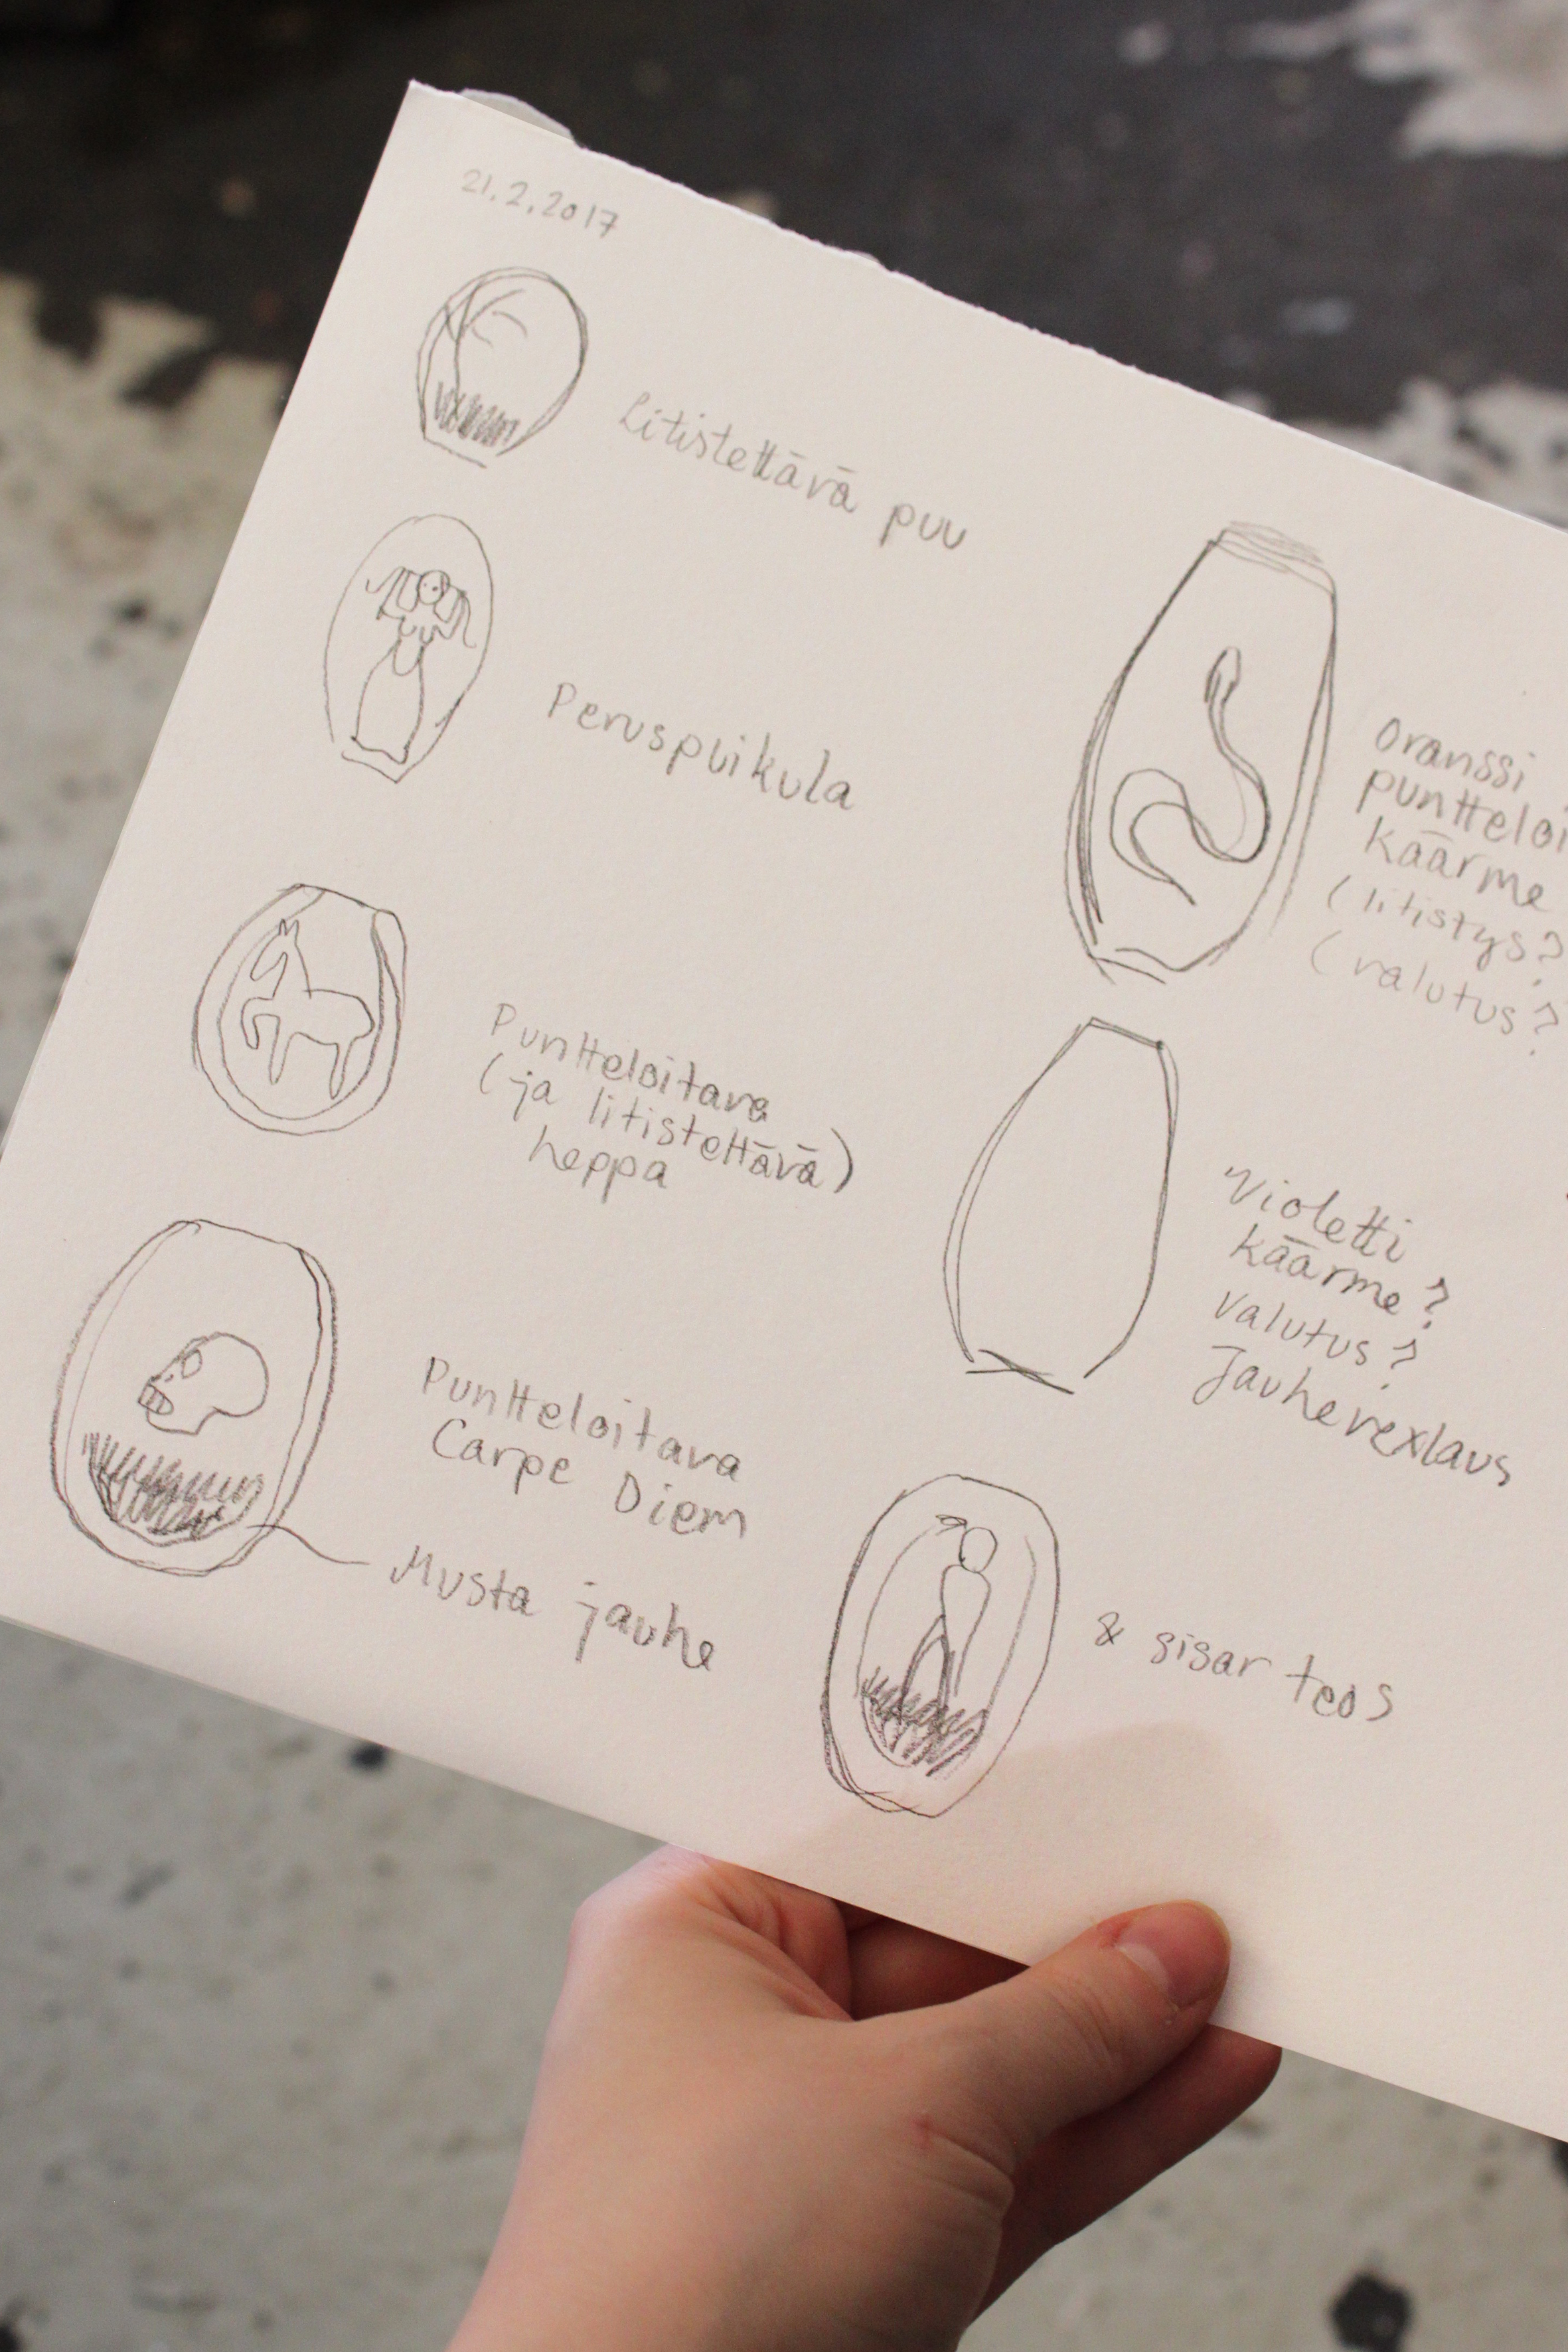 21.2.2017
Litistettävä puu
Peruspuikula
Puntteloitava
(ja litistettävä)
heppa
Puntteloitava
Carpe Diem
Musta jauhe
Oranssi
puntteloi
käärme
(litistys?
(valutus?
Violetti
käärme?
valutus?
Jauhevexlaus
& sisar teos